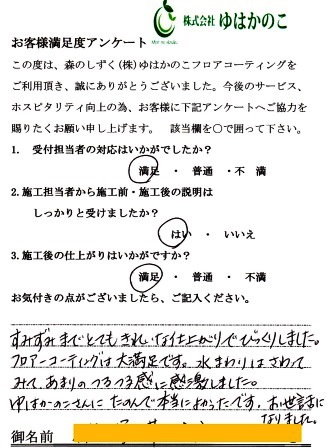 株式会社 ゆはかのこ
お客様満足度アンケート
この度は、森のしずく(株)ゆはかのこフロアコーティングを
ご利用頂き、誠にありがとうございました。今後のサービス、
ホスピタリティ向上の為、お客様に下記アンケートへご協力を
賜りたくお願い申し上げます。 該当欄を○で囲って下さい。
1. 受付担当者の対応はいかがでしたか？
満足 ・ 普通 ・不 満
2. 施工担当者から施工前・施工後の説明は
しっかりと受けましたか？
はい ・ いいえ
3. 施工後の仕上がりはいかがですか？
満足 ・ 普通 ・ 不満
お気付きの点がございましたら、ご記入ください。
すみずみまでとてもきれいな仕上がりでびっくりしました。
フロアーコーティングは大満足です。水まわりはさわって
みて、あまりのつるつる感に感激しました。
ゆはかのこさんにたのんで本当によかったです。お世話に
なりました。
御名前